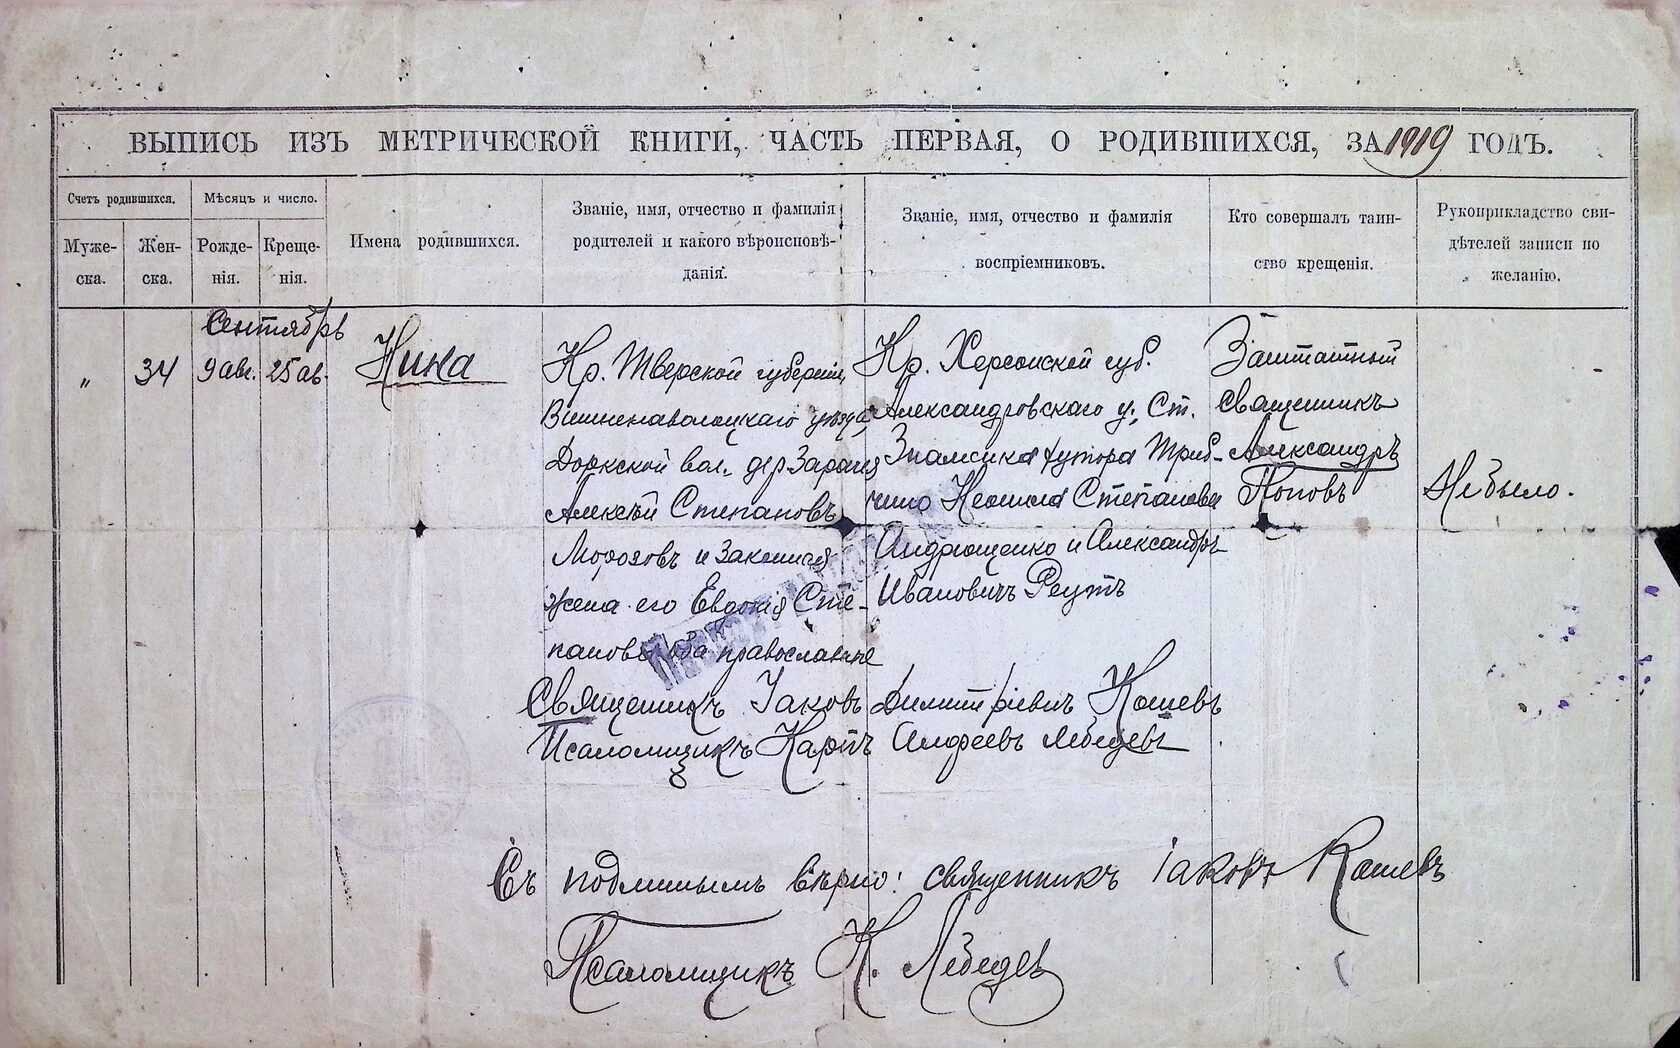 ВЫПИСЬ ИЗЪ МЕТРИЧЕСКОЙ КНИГИ, ЧАСТЬ ПЕРВАЯ, О РОДИВШИХСЯ, ЗА 1919 ГОДЪ.
Счетъ родившихся.
Муже-
ска.
Жен-
ска.
Мѣсяцъ и число.
Рожде-
нія.
Креще-
нія.
Имена родившихся.
Званіе, имя, отчество и фамилія
родителей и какого вѣроисповѣ-
данія.
Званіе, имя, отчество и фамилія
воспріемниковъ.
Кто совершалъ таин-
ство крещенія.
Рукоприкладство сви-
дѣтелей записи по
желанію.
Сентябрь
„
34
9 авг.
25 ав.
Нина
Кр. Тверской губерніи,
Вышневолоцкаго уѣзда,
Доркской вол. дер.
Алексѣй Степановъ
Морозовъ и законная
жена его Евдокія Сте-
панова оба православные
Кр. Херсонской губ.
Александровскаго у. Ст.
Знаменка хутора Триб-
Степановна
Андрющенко и Александръ
Ивановичъ Реутъ
Заштатный
священникъ
Александръ
Поповъ
Не было.
Священникъ Іаковъ Димитріевич Кошевъ
Псаломщикъ Карпъ Андреевъ Лебедевъ
Съ подлиннымъ вѣрно: священникъ Іаковъ Кошевъ
Псаломщикъ К. Лебедев